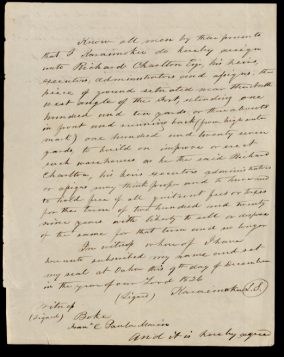 Know all men by these presents
that I Karaimoku do hereby assign
unto Richard Charlton Esqr, his heirs,
executors, administrators and assigns, the
piece of ground situated near the
west angle of the Fort, extending one
hundred and ten yards or thereabouts
in front and running back (from high water
mark) one hundred and twenty seven
yards to build on improve or erect
such warehouses as he the said Richard
Charlton, his heirs executors administrators
or assigns may think proper and to have and
to hold free of all quitrent fees or taxes
for the term of two hundred and ninety
nine years with liberty to sell or dispose
of the same for that term and no longer
In witness whereof I have
hereunto subscribed my name and set
my seal at Oahu this 9th day of December
in the year of our Lord 1826
(Signed) Karaimoku L.S.
Witness
(Signed) Boki
Franco de Paula Marin
And it is hereby agree